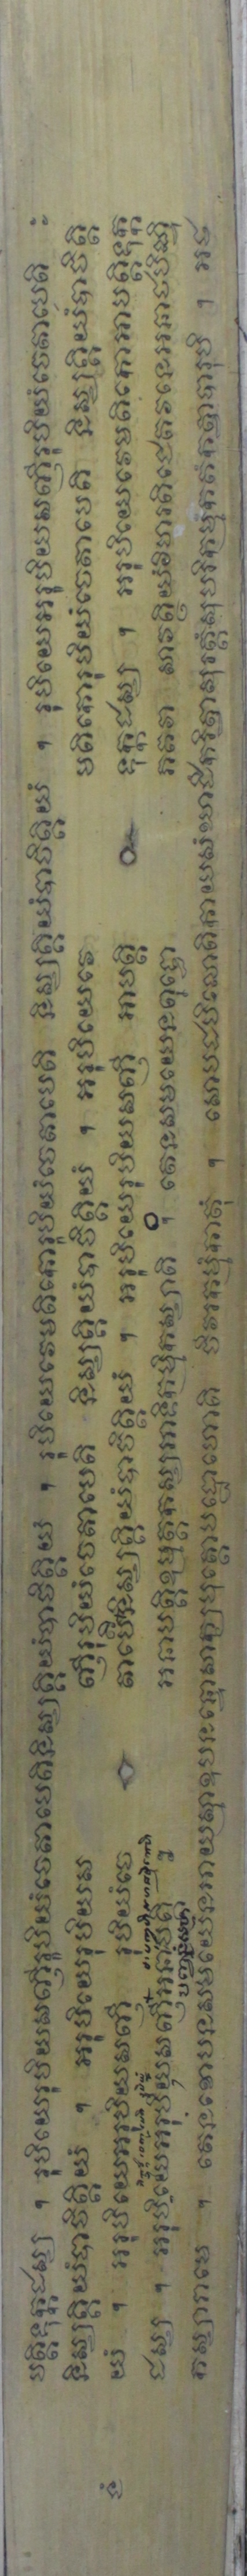 បត្តិទុក្កដស្ស ។ រូបិយេរូបិយសញ្ញីរូបិយំចេតាបេតិនិស្សគ្គិយំបាចិត្តិយំ ។ រូបិយេវេមតិកោរូបិយំចេតាបេតិ និស្សគ្គិយំបាចិត្តិយំ ។ រូបិយេអរូបិយសញ្ញីរូបិយំចេតាបេតិ ៈ
និស្សគ្គិយំបាចិត្តិយំ ។ អរូបិយេរូបិយសញ្ញីរូបិយំចេតាបេតិ និស្សគ្គិយំបាចិត្តិយំ ។ អរូបិយេវេមតិកោរូបិយំចេតាបេតិ និស្សគ្គិយំបាចិត្តិ
យំ ។ អរូបិយេអរូបិយសញ្ញី រូបិយំចេតាបេតិនិស្សគ្គិយំបាចិត្តិយំ ។ អរូបិយេរូបិយសញ្ញី អាបត្តិទុក្កដស្ស ។ អរូបិយេវេមតិកោអាបត្តិទុក្ក
ដស្ស ។ អរូបិយេអរូបិយសញ្ញីអនាបត្តិ ។ អនាបត្តិឧម្មត្តកស្សអាទិកម្មិកស្សាតិ ។ តេនសមយេនពុទ្ធោភគវា សាវត្ថិយំវិហរតិជេតវនេអនាថបិណ្ឌិ
កស្សារាមេ ។ តេនខោបនសមយេនអាយស្មាឧបនន្ទោសក្យបុត្តោបដ្ដោហោតិ ចីវរកម្មំកាតុំ ។ សោបដបិលោតិកាយសំឃាដីករិត្វាសុរត្តំសុបរិកម្មកតំកត្វាបារុបិ ។ អថ